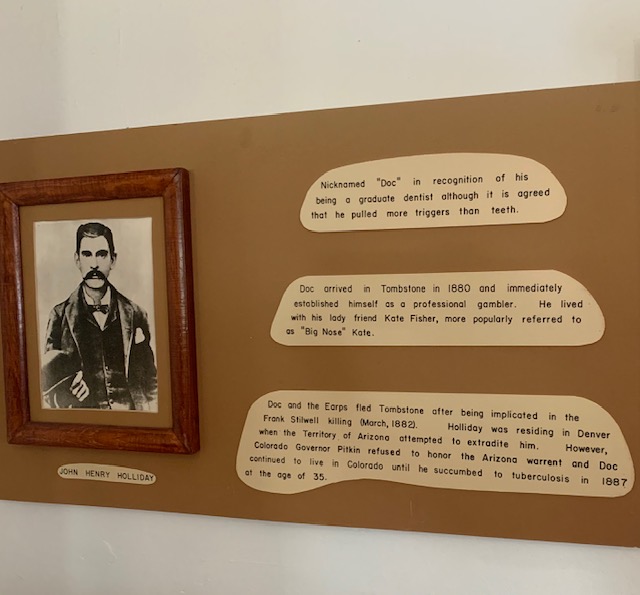 Nicknamed "Doc" in recognition of his
being a graduate dentist although it is agreed
that he pulled more triggers than teeth.
Doc arrived in Tombstone in 1880 and immediately
established himself as a professional gambler. He lived
with his lady friend Kate Fisher, more popularly referred to
as "Big Nose" Kate.
Doc and the Earps fled Tombstone after being implicated in the
Frank Stilwell killing (March, 1882). Holliday was residing in Denver
when the Territory of Arizona attempted to extradite him. However,
Colorado Governor Pitkin refused to honor the Arizona warrent and Doc
continued to live in Colorado until he succumbed to tuberculosis in 1887
at the age of 35.
JOHN HENRY HOLLIDAY